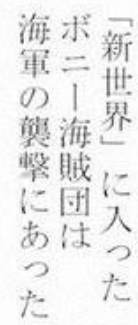 「新世界」に入った
ボニー海賊団は
海軍の襲撃にあった